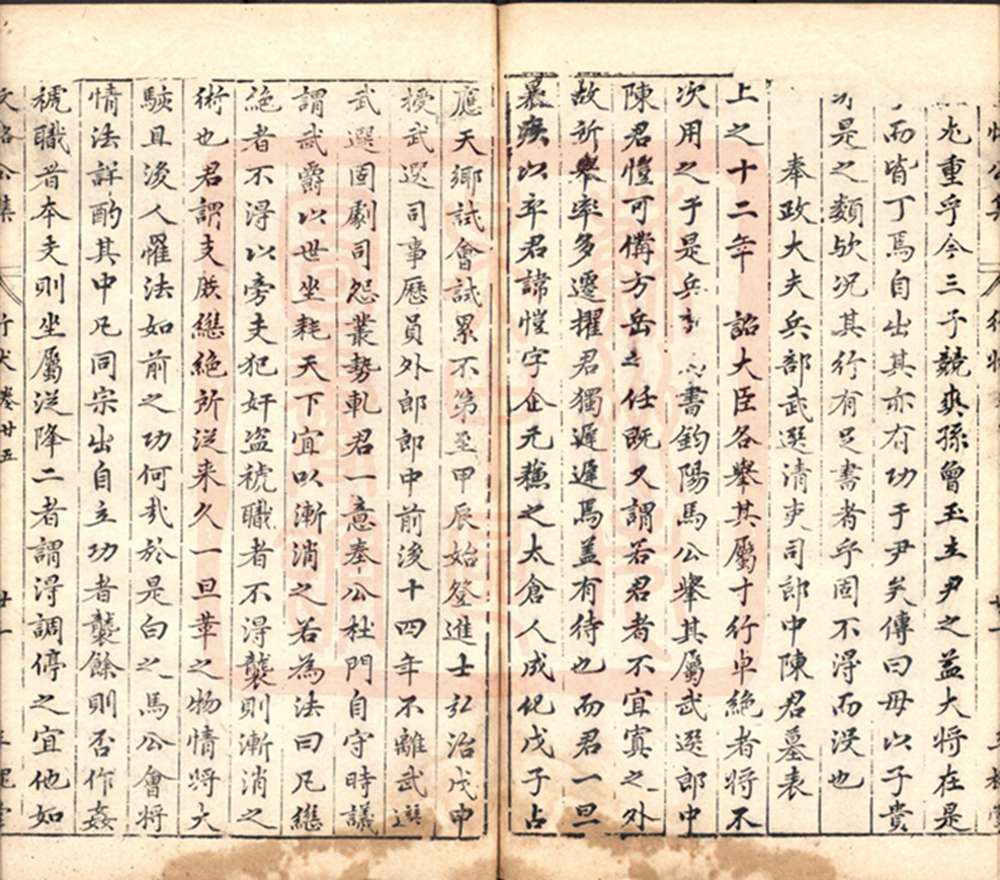 尤重乎今三子競爽孫曾玉立尹之益大將在是
而皆丁焉自出其亦有功于尹矣傳曰母以子貴
是之類歟況其行有足書者乎固不得而沒也
奉政大夫兵部武選清吏司郎中陳君墓表
上之十二年 詔大臣各舉其屬才行卓絶者將不
次用之于是兵書鈞陽馬公舉其屬武選郎中
陳君愷可備方岳之任既又謂若君者不宜寘之外
故所舉率多遷擢君獨遲遲焉盖有待也而君一旦
暴疾以卒君諱愷字企元蘇之太倉人成化戊子占
應天鄉試會試累不第至甲辰始登進士弘治戊申
授武選司事歷員外郎郎中前後十四年不離武選
武選固劇司怨叢勢軋君一意奉公杜門自守時議
謂武爵以世坐耗天下宜以漸消之若為法曰凡繼
絶者不得以旁支犯奸盗褫職者不得襲則漸消之
術也君謂支族繼絶所從来久一旦革之物情將大
駭且後人罹法如前之功何哉於是白之馬公會將
情法詳酌其中凡同宗出自立功者襲餘則否作姦
褫職者本支則坐屬從降二者謂得調停之宜他如
文恪公集 行狀卷廿五 廿一